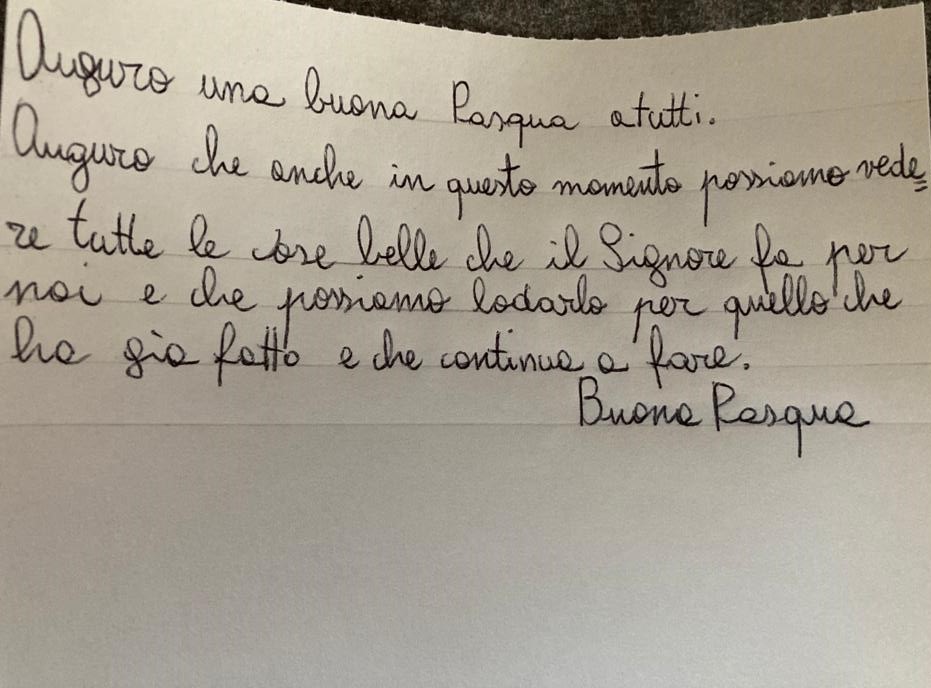 Auguro una buona Pasqua a tutti.
Auguro che anche in questo momento possiamo vede=
re tutte le cose belle che il Signore fa per
noi e che possiamo lodarlo per quello che
ha già fatto e che continua a fare.
Buona Pasqua